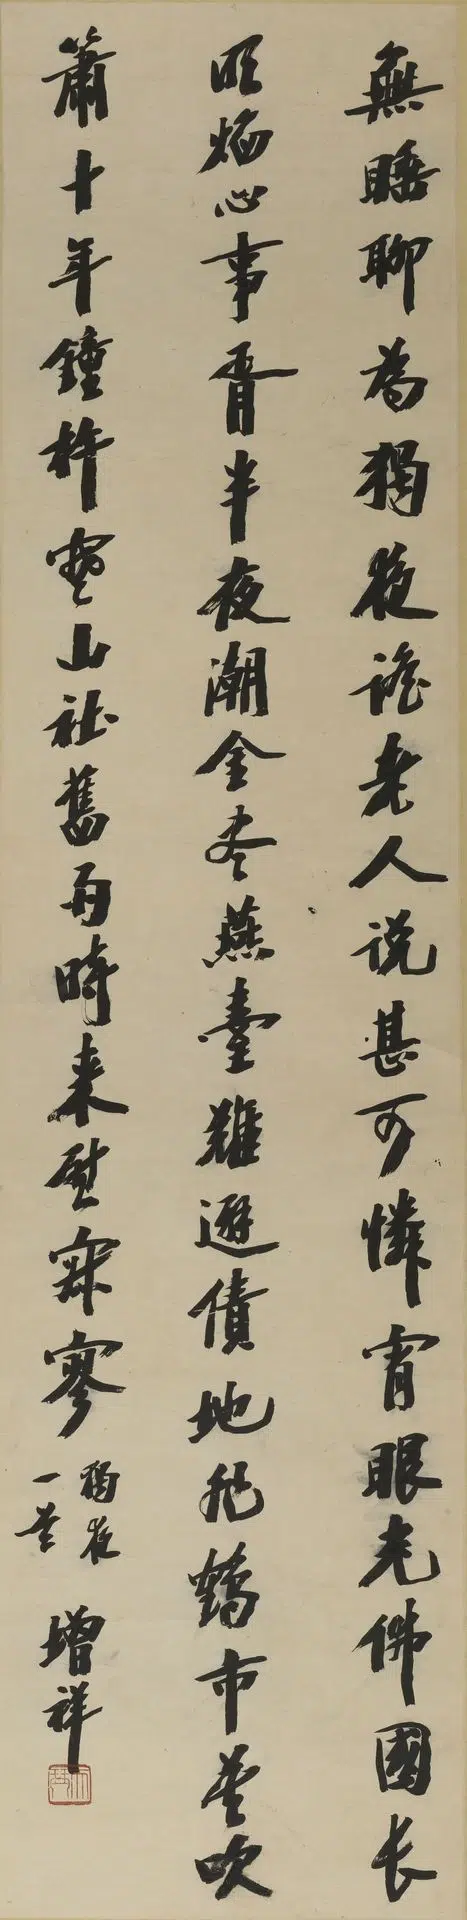 無睡聊為獨夜謠老人說甚可憐宵眼光佛國長
明焰心事胥半夜潮金盡燕臺難避債地非鶴市莫吹
簫十年鐘杵寒山社舊雨時来慰寂寥
獨夜
一
增祥